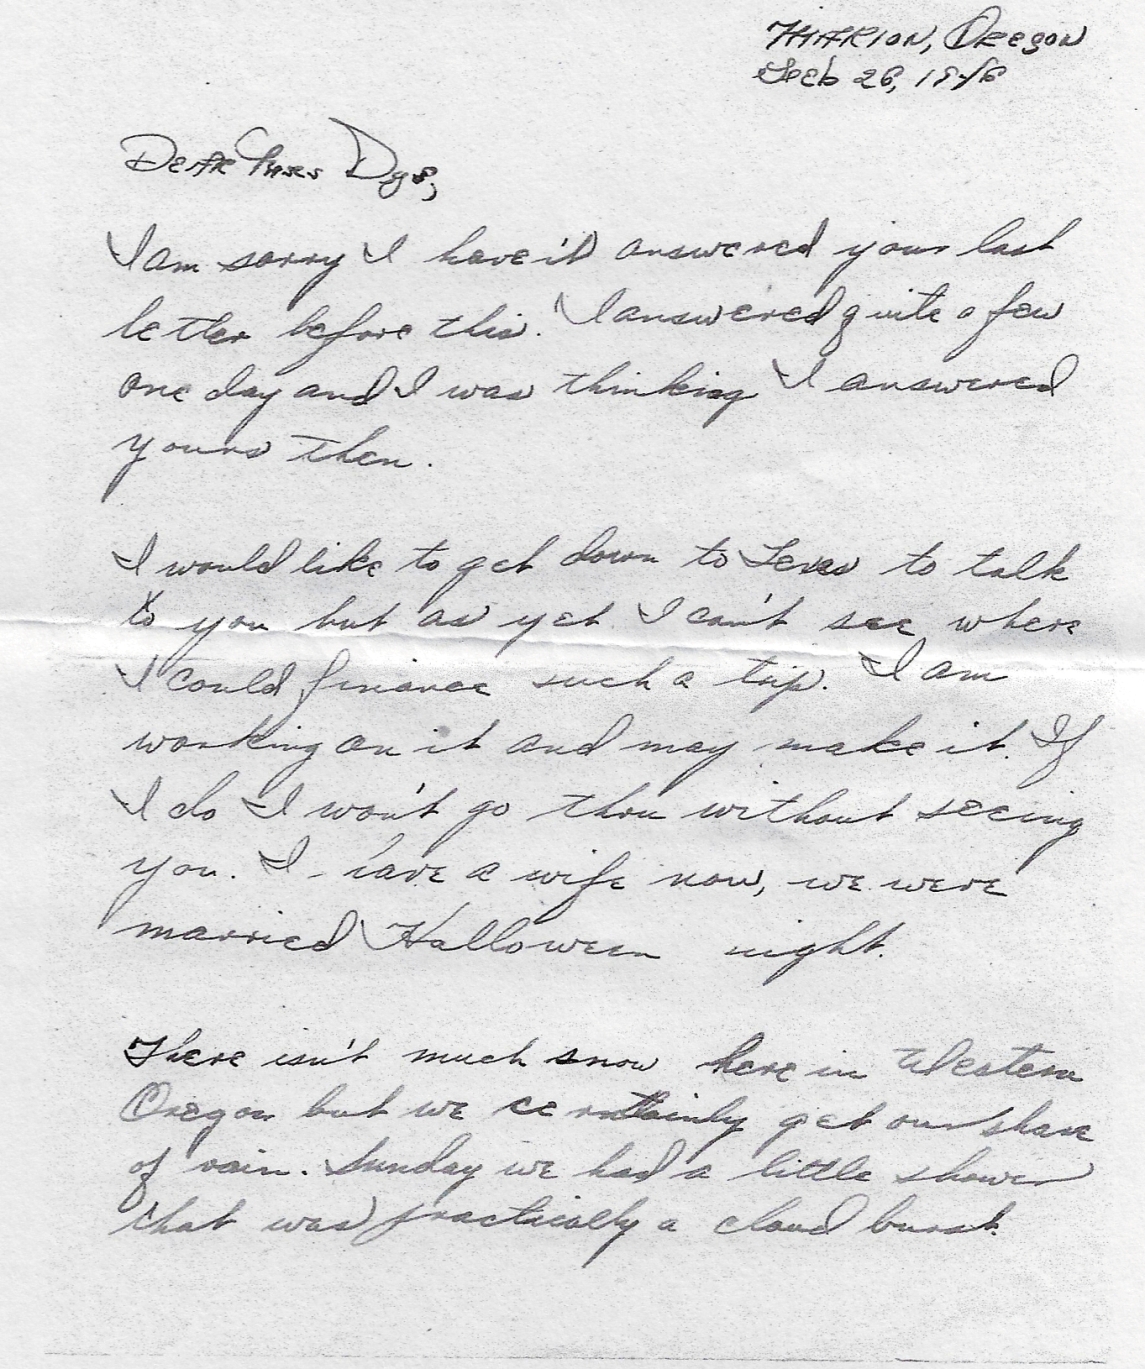 Marion, Oregon
Feb 26, 1946
Dear Miss Dys,
I am sorry I have'nt answered your last
letter before this. I answered quite a few
one day and I was thinking I answered
yours then.
I would like to get down to Texas to talk
to you but as yet I can't see where
I could finance such a trip. I am
working on it and may make it. If
I do I won't go thru without seeing
you. I have a wife now, we were
married Halloween night.
There isn't much snow here in Western
Oregon but we certainly get our share
of rain. Sunday we had a little shower
that was practically a cloud burst.